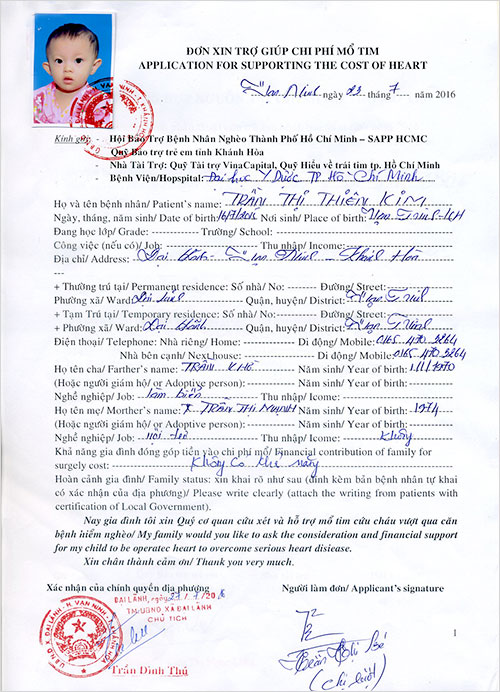 ĐƠN XIN TRỢ GIÚP CHI PHÍ MỔ TIM
APPLICATION FOR SUPPORTING THE COST OF HEART
Vạn Ninh ngày 23 tháng 7 năm 2016
Kính gửi: - Hội Bảo Trợ Bệnh Nhân Nghèo Thành Phố Hồ Chí Minh – SAPP HCMC
- Quỹ Bảo trợ trẻ em tỉnh Khánh Hòa
- Nhà Tài Trợ: Quỹ Tài trợ VinaCapital, Quỹ Hiểu về trái tim tp. Hồ Chí Minh
- Bệnh Viện/Hopspital: Đại học Y Dược TP Hồ Chí Minh
Họ và tên bệnh nhân/ Patient's name: TRẦN THỊ THIÊN KIM
Ngày, tháng, năm sinh/ Date of birth: Nơi sinh/ Place of birth: Vạn Ninh-KH
Đang học lớp/ Grade: ------------ Trường/ School: ------------
Công việc (nếu có)/ Job: ------------ Thu nhập/ Income: ------------
Địa chỉ/ Address: Đại Lãnh - Vạn Ninh - Khánh Hòa
---
+ Thường trú tại/ Permanent residence: Số nhà/ No: --------- Đường/ Street: ------------
Phường xã/ Ward: Đại Lãnh Quận, huyện/ District: Vạn Ninh
+ Tạm Trú tại/ Temporary residence: Số nhà/ No: --------- Đường/ Street: ------------
+ Phường xã/ Ward: Đại Lãnh Quận, huyện/ District: Vạn Ninh
Điện thoại/ Telephone: Nhà riêng/ Home: ------------ Di động/ Mobile: 0165 470 3264
Nhà bên cạnh/ Next house: ------------ Di động/ Mobile: 0165 470 3264
Họ tên cha/ Farther's name: TRẦN KHÔ Năm sinh/ Year of birth: 1/1/1970
(Hoặc người giám hộ/ or Adoptive person): --------- Năm sinh/ Year of birth: ---------
Nghề nghiệp/ Job: làm biển Thu nhập/ Icome: ------------
Họ tên mẹ/ Morther's name: TRẦN THỊ MẠNH Năm sinh/ Year of birth: 1974
(Hoặc người giám hộ/ or Adoptive person): --------- Năm sinh/ Year of birth: ---------
Nghề nghiệp/ Job: nội trợ Thu nhập/ Icome: Không
Khả năng gia đình đóng góp tiền vào chi phí mổ/ Financial contribution of family for
surgely cost: Không có khả năng
Hoàn cảnh gia đình/ Family status: xin khai rõ như sau (đính kèm bản bệnh nhân tự khai
có xác nhận của địa phương)/ Please write clearly (attach the writing from patients with
certification of Local Government).
Nay gia đình tôi xin Quý cơ quan cứu xét và hỗ trợ mổ tim cứu cháu vượt qua căn
bệnh hiểm nghèo/ My family would you like to ask the consideration and financial support
for my child to be operatec heart to overcome serious heart disiease.
Xin chân thành cảm ơn/ Thank you very much.
Xác nhận của chính quyền địa phương Người làm đơn/ Applicant's signature
ĐẠI LÃNH, ngày 27 / 7 / 2016
TM. UBND XÃ ĐẠI LÃNH
CHỦ TỊCH
Trần Đình Thú
Trần Thị Bé
1